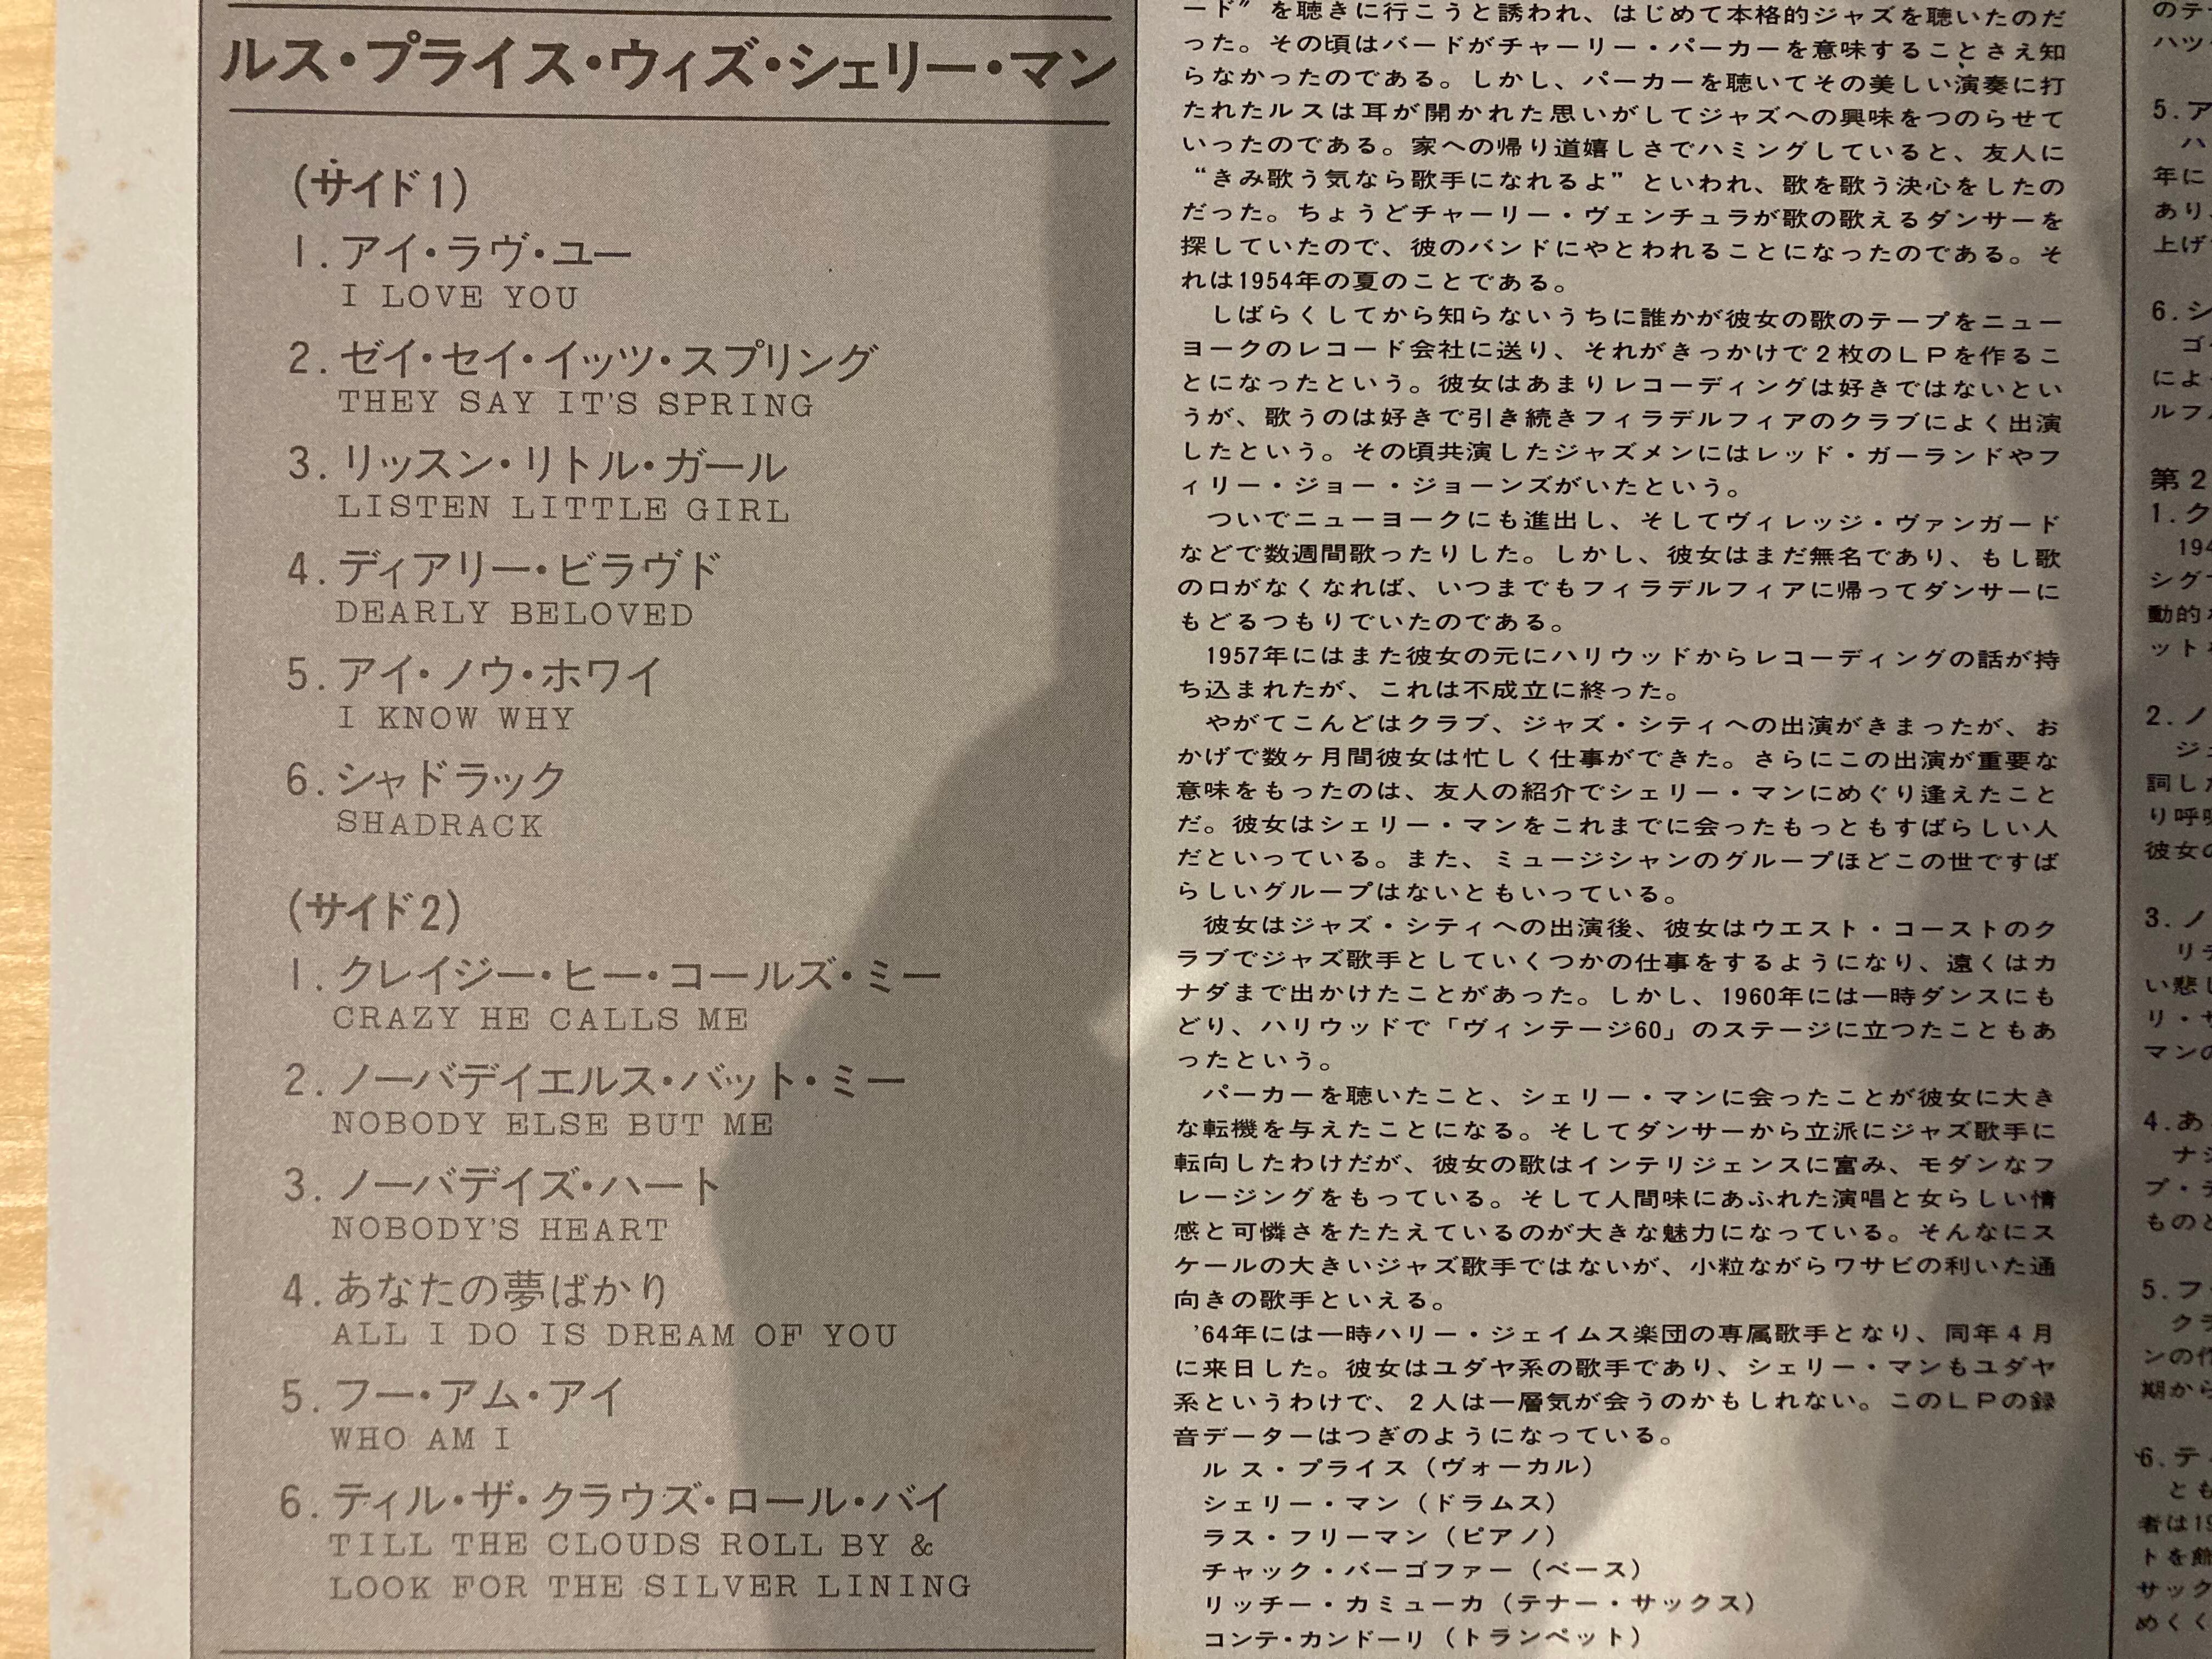 ルス・プライス・ウィズ・シェリー・マン
(サイド1)
1.アイ・ラヴ・ユー
I LOVE YOU
2.ゼイ・セイ・イッツ・スプリング
THEY SAY IT'S SPRING
3.リッスン・リトル・ガール
LISTEN LITTLE GIRL
4.ディアリー・ビラヴド
DEARLY BELOVED
5.アイ・ノウ・ホワイ
I KNOW WHY
6.シャドラック
SHADRACK
(サイド2)
1.クレイジー・ヒー・コールズ・ミー
CRAZY HE CALLS ME
2.ノーバデイエルス・バット・ミー
NOBODY ELSE BUT ME
3.ノーバデイズ・ハート
NOBODY'S HEART
4.あなたの夢ばかり
ALL I DO IS DREAM OF YOU
5.フー・アム・アイ
WHO AM I
6.ティル・ザ・クラウズ・ロール・バイ
TILL THE CLOUDS ROLL BY &
LOOK FOR THE SILVER LINING
ード”を聴きに行こうと誘われ、はじめて本格的ジャズを聴いたのだ
った。その頃はバードがチャーリー・パーカーを意味することさえ知
らなかったのである。しかし、パーカーを聴いてその美しい演奏に打
たれたルスは耳が開かれた思いがしてジャズへの興味をつのらせて
いったのである。家への帰り道嬉しさでハミングしていると、友人に
“きみ歌う気なら歌手になれるよ”といわれ、歌を歌う決心をしたの
だった。ちょうどチャーリー・ヴェンチュラが歌の歌えるダンサーを
探していたので、彼のバンドにやとわれることになったのである。そ
れは1954年の夏のことである。
しばらくしてから知らないうちに誰かが彼女の歌のテープをニュー
ヨークのレコード会社に送り、それがきっかけで2枚のLPを作るこ
とになったという。彼女はあまりレコーディングは好きではないとい
うが、歌うのは好きで引き続きフィラデルフィアのクラブによく出演
したという。その頃共演したジャズメンにはレッド・ガーランドやフ
ィリー・ジョー・ジョーンズがいたという。
ついでニューヨークにも進出し、そしてヴィレッジ・ヴァンガード
などで数週間歌ったりした。しかし、彼女はまだ無名であり、もし歌
の口がなくなれば、いつまでもフィラデルフィアに帰ってダンサーに
もどるつもりでいたのである。
1957年にはまた彼女の元にハリウッドからレコーディングの話が持
ち込まれたが、これは不成立に終った。
やがてこんどはクラブ、ジャズ・シティへの出演がきまったが、お
かげで数ヶ月間彼女は忙しく仕事ができた。さらにこの出演が重要な
意味をもったのは、友人の紹介でシェリー・マンにめぐり逢えたこと
だ。彼女はシェリー・マンをこれまでに会ったもっともすばらしい人
だといっている。また、ミュージシャンのグループほどこの世ですば
らしいグループはないともいっている。
彼女はジャズ・シティへの出演後、彼女はウエスト・コーストのク
ラブでジャズ歌手としていくつかの仕事をするようになり、遠くはカ
ナダまで出かけたことがあった。しかし、1960年には一時ダンスにも
どり、ハリウッドで「ヴィンテージ60」のステージに立つたこともあ
ったという。
パーカーを聴いたこと、シェリー・マンに会ったことが彼女に大き
な転機を与えたことになる。そしてダンサーから立派にジャズ歌手に
転向したわけだが、彼女の歌はインテリジェンスに富み、モダンなフ
レージングをもっている。そして人間味にあふれた演唱と女らしい情
感と可憐さをたたえているのが大きな魅力になっている。そんなにス
ケールの大きいジャズ歌手ではないが、小粒ながらワサビの利いた通
向きの歌手といえる。
’64年には一時ハリー・ジェイムス楽団の専属歌手となり、同年4月
に来日した。彼女はユダヤ系の歌手であり、シェリー・マンもユダヤ
系というわけで、2人は一層気が会うのかもしれない。このLPの録
音データーはつぎのようになっている。
ルス・プライス(ヴォーカル)
シェリー・マン(ドラムス)
ラス・フリーマン(ピアノ)
チャック・バーゴファー(ベース)
リッチー・カミューカ(テナー・サックス)
コンテ・カンドーリ(トランペット)
のテ
ハツ
5.ア
ハ
年に
あり
上げ
6.シ
ゴ
によ
ルフ
第2
1.ク
194
シグ
動的
ット
2.ノ
ジ
詞し
り呼
彼女の
3.ノ
リ
い悲し
リ・サ
マンの
4.あ
ナ
プ・テ
ものと
5.フ
ク
ンの作
期から
6.テ
とも
者は19
トを飾
サック
めくく